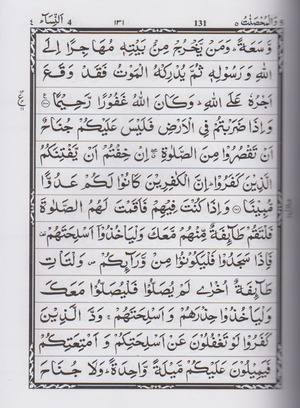 النسآء ٤ 4 ١٣١ 131 والمحصنت ٥ 5
وَّسَعَةً ؕ وَمَنْ يَّخْرُجْ مِنْۢ بَيْتِهٖ مُهَاجِرًا اِلَى
اللّٰهِ وَرَسُوْلِهٖ ثُمَّ يُدْرِكْهُ الْمَوْتُ فَقَدْ وَقَعَ
اَجْرُهٗ عَلَى اللّٰهِ ؕ وَكَانَ اللّٰهُ غَفُوْرًا رَّحِيْمًا
وَاِذَا ضَرَبْتُمْ فِي الْاَرْضِ فَلَيْسَ عَلَيْكُمْ جُنَاحٌ
اَنْ تَقْصُرُوْا مِنَ الصَّلٰوةِ ۖ اِنْ خِفْتُمْ اَنْ يَّفْتِنَكُمُ
الَّذِيْنَ كَفَرُوْا ؕ اِنَّ الْكٰفِرِيْنَ كَانُوْا لَكُمْ عَدُوًّا
مُّبِيْنًا وَاِذَا كُنْتَ فِيْهِمْ فَاَقَمْتَ لَهُمُ الصَّلٰوةَ
فَلْتَقُمْ طَآئِفَةٌ مِّنْهُمْ مَّعَكَ وَلْيَاْخُذُوْۤا اَسْلِحَتَهُمْ
فَاِذَا سَجَدُوْا فَلْيَكُوْنُوْا مِنْ وَّرَآئِكُمْ وَلْتَاْتِ
طَآئِفَةٌ اُخْرٰى لَمْ يُصَلُّوْا فَلْيُصَلُّوْا مَعَكَ
وَلْيَاْخُذُوْا حِذْرَهُمْ وَاَسْلِحَتَهُمْ ۚ وَدَّ الَّذِيْنَ
كَفَرُوْا لَوْ تَغْفُلُوْنَ عَنْ اَسْلِحَتِكُمْ وَاَمْتِعَتِكُمْ
فَيَمِيْلُوْنَ عَلَيْكُمْ مَّيْلَةً وَّاحِدَةً ؕ وَلَا جُنَاحَ